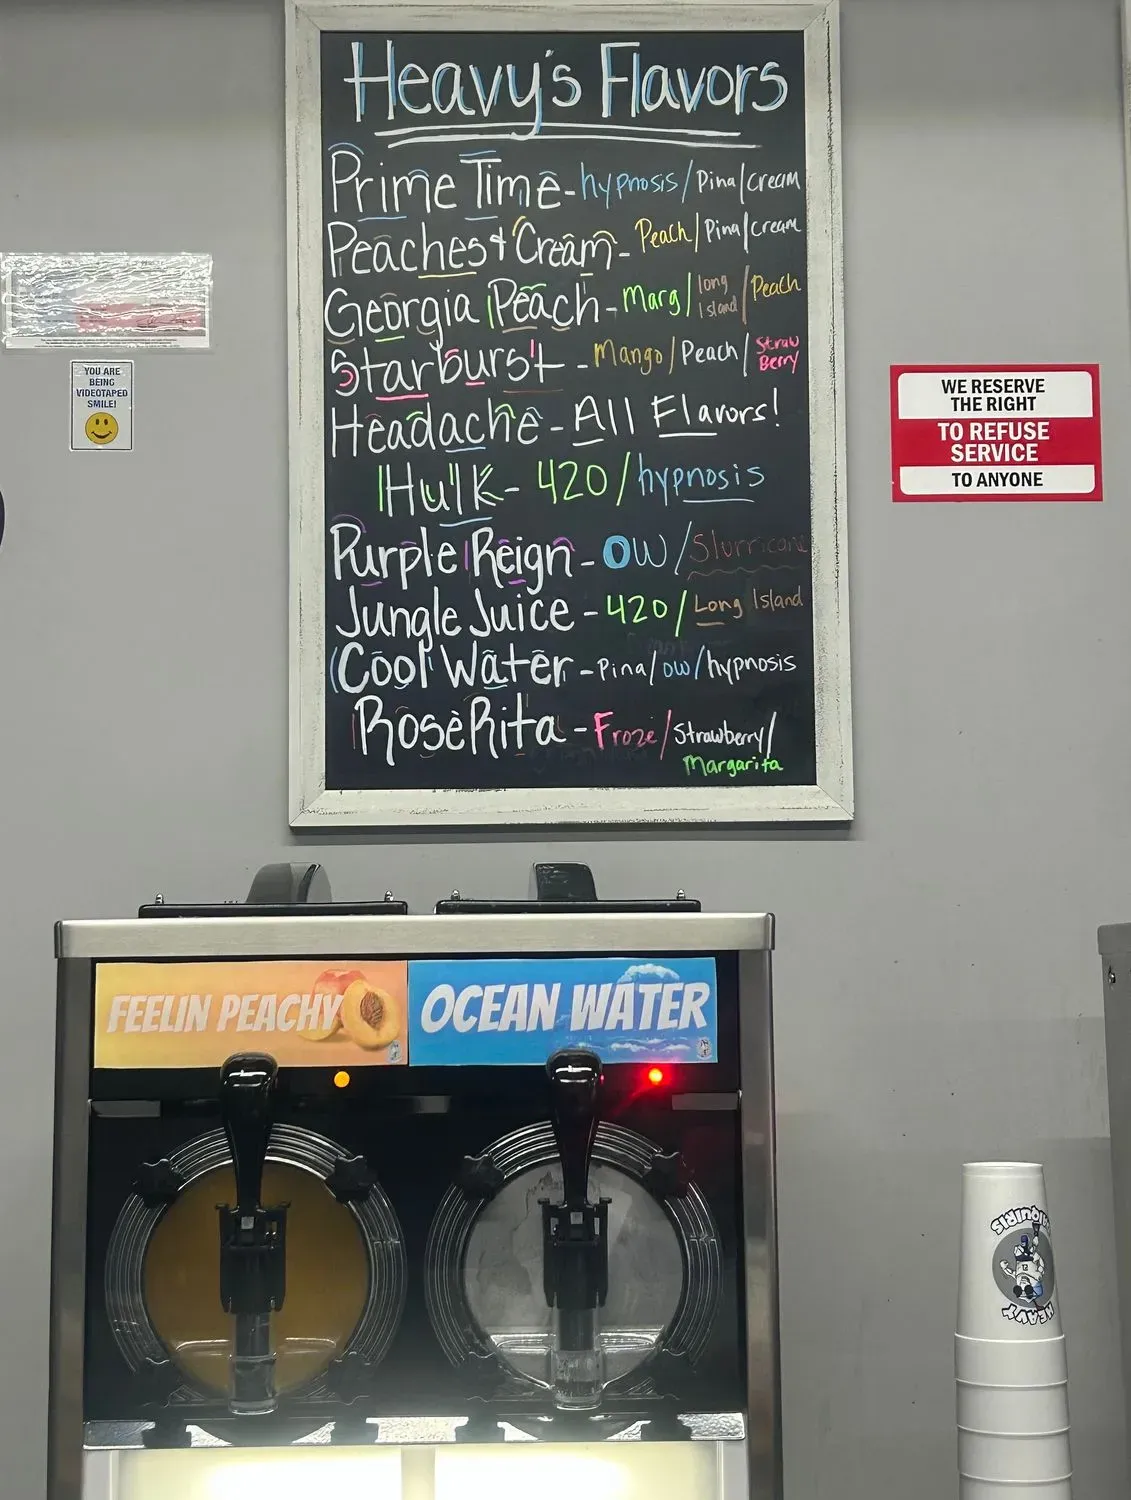 Heavy's Flavors
Prime Time - hypnosis/Pina/cream
Peaches & Cream - Peach/Pina/cream
Georgia Peach - Marg/long Island/Peach
Starburst - Mango/Peach/Straw Berry
Headache - All Flavors!
Hulk - 420/hypnosis
Purple Reign - OW/Slurricane
Jungle Juice - 420/Long Island
Cool Water - Pina/OW/hypnosis
RosèRita - Frozè/Strawberry/
Margarita
YOU ARE
BEING
VIDEOTAPED
SMILE!
WE RESERVE
THE RIGHT
TO REFUSE
SERVICE
TO ANYONE
FEELIN PEACHY
OCEAN WATER
HEAVY
DAIQUIRIS